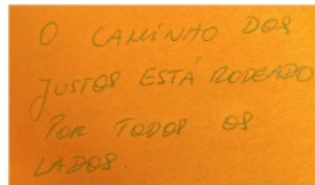 O CAMINHO DOS
JUSTOS ESTÁ RODEADO
POR TODOS OS
LADOS.